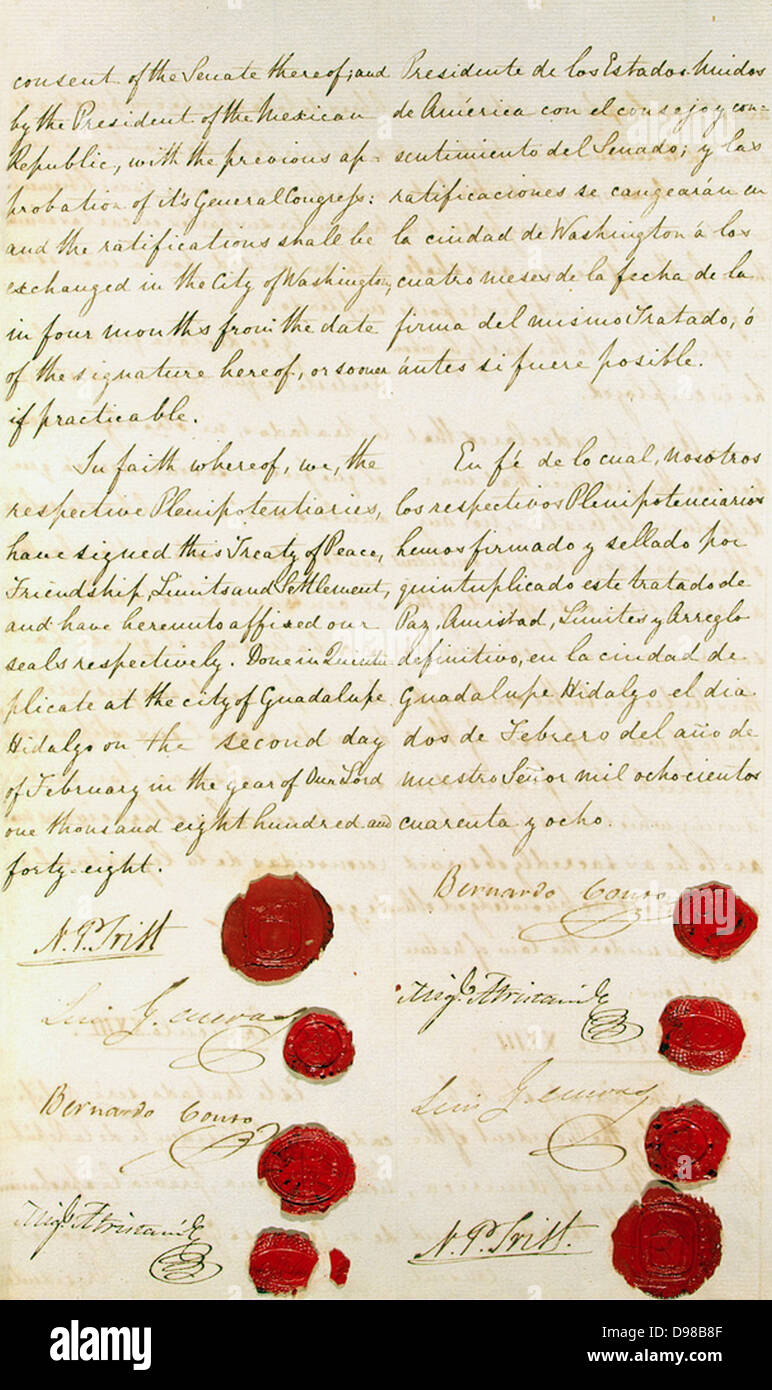 consent of the Senate thereof; and
by the President of the Mexican
Republic, with the previous ap=
probation of it's General Congress:
and the ratifications shall be
exchanged in the City of Washington,
in four months from the date
of the signature hereof, or sooner
if practicable.
In faith whereof, we, the
respective Plenipotentiaries,
have signed this Treaty of Peace,
Friendship, Limits and Settlement,
and have hereunto affixed our
seals respectively. Done in Quintu
plicate at the city of Guadalupe
Hidalgo on the second day
of February in the year of Our Lord
one thousand eight hundred and
forty-eight.
N. P. Trist
Luis G. Cuevas
Bernardo Couto
Migl. Atristain
Presidente de los Estados Unidos
de América con el consejo y con=
sentimiento del Senado; y las
ratificaciones se cangearán en
la ciudad de Washington á los
cuatro meses de la fecha de la
firma del mismo Tratado, ó
ántes si fuere posible.
En fé de lo cual, nosotros
los respectivos Plenipotenciarios
hemos firmado y sellado por
quintuplicado este tratado de
Paz, Amistad, Límites y Arreglo
definitivo, en la ciudad de
Guadalupe Hidalgo el dia
dos de Febrero del año de
nuestro Señor mil ochocientos
cuarenta y ocho.
Bernardo Couto
Migl. Atristain
Luis G. Cuevas
N. P. Trist.
alamy
alamy
a alamy stock photo
D98B8F
www.alamy.com